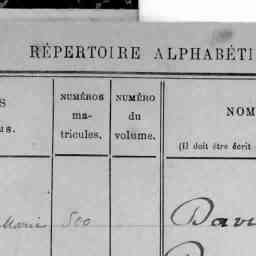 RÉPERTOIRE ALPHABÉTI
S
us.
NUMÉROS
ma-
tricules.
NUMÉRO
du
volume.
NOM
(Il doit être écrit
Marie 500
Davi